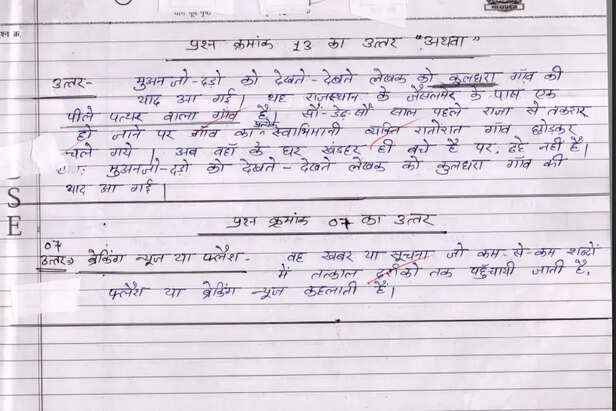 प्रश्न क्रमांक 13 का उत्तर "अथवा"
उत्तर- मुअनजो-दड़ो को देखते-देखते लेखक को कुलधरा गाँव की
याद आ गई। यह राजस्थान के जैसलमेर के पास एक
पीले पत्थर वाला गाँव है। सौ-डेढ़-सौ साल पहले राजा से तकरार
हो जाने पर गाँव का प्रत्येक स्वाभिमानी व्यक्ति रातोरात गांव छोड़कर
चले गये। अब वहाँ के घर खंडहर ही बचे है पर, ढहे नहीं है।
अतः मुअनजो-दड़ो को देखते-देखते लेखक को कुलधरा गाँव की
याद आ गई।
S
E
प्रश्न क्रमांक 07 का उत्तर
07
उत्तर→ ब्रेकिंग न्यूज या फ्लैश- वह खबर या सूचना जो कम-से-कम शब्दों
में तत्काल दर्शको तक पहुँचायी जाती है,
फ्लैश या ब्रेकिंग न्यूज कहलाती है।